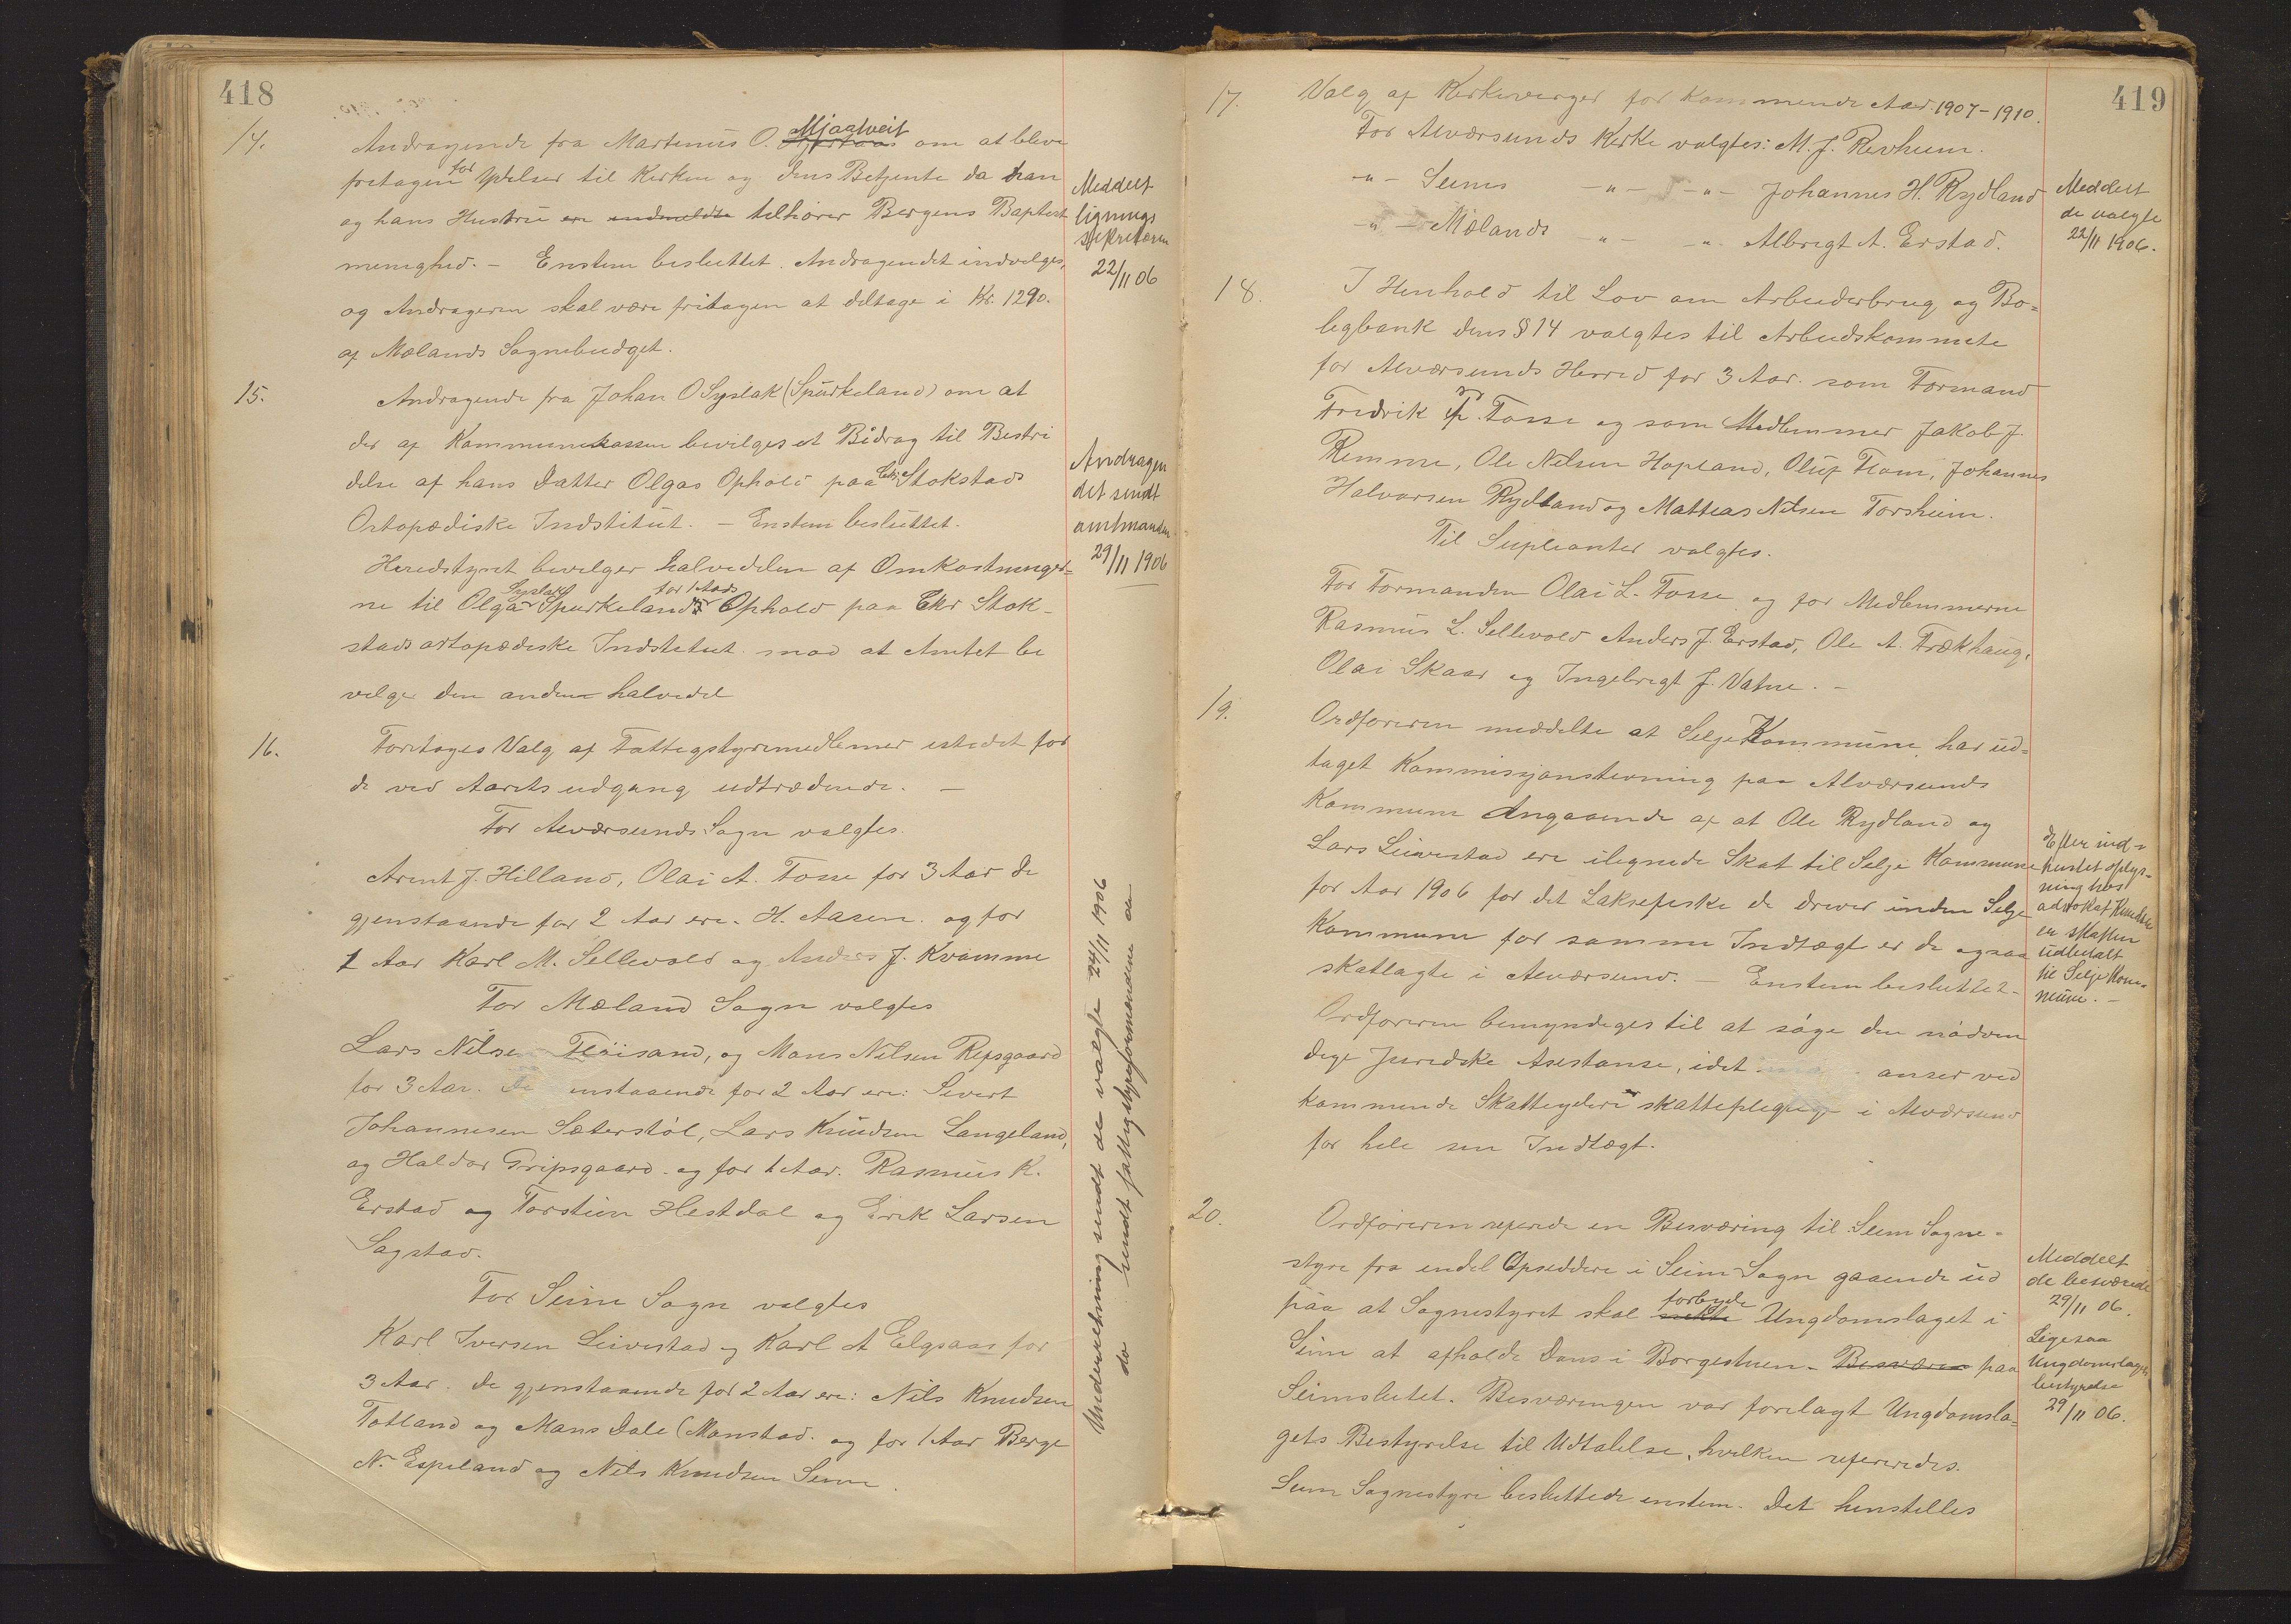 418
14.
Andragende fra Martinus O. Mjaatveit om at bleve
fretagen for Ydelser til Kirken og dens Betjente da han
og hans Hustru ere indmeldte tilhører Bergens Baptist
menighed. - Enstem besluttet. Andragendet indvilges,
og Andrageren skal være fritagen at deltage i Kr. 1290.
af Mælands Sognebudget.
Meddelt
lignings
sekretæren
22/11 06
15.
Andragende fra Johan O Syslak (Spurkeland) om at
der af Kommunekassen bevilges et Bidrag til Bestri
delse af hans Datter Olgas Ophold paa Chr. Stokstads
Ortopædiske Indstitut. - Enstem besluttet.
Heredstyret bevilger halvedelen af Omkostninger=
ne til Olga Syslak Spurkelands for 1 Aars Ophold paa Chr Stok-
stads ortopædiske Indstitut mod at Amtet be
vilge den anden halvedel
Andragen
det sendt
amtmanden
29/11 1906
16.
Foretoges Valg af Fattigstyremedlemer istedet for
de ved Aarets udgang udtrædende. -
For Alværsunds Sogn valgtes.
Arent J. Hilland, Olai A. Fosse for 3 Aar de
gjenstaaende for 2 Aar ere. H. Aasen. og for
1 Aar Karl M. Sellevold og Anders J. Kvamme
For Mæland Sogn valgtes
Lars Nilsen Fløisand, og Mons Nilsen Repsgaard
for 3 Aar. De enstaaende for 2 Aar ere: Sivert
Johannesen Sæterstøl, Lars Knudsen Langeland,
og Haldor Gripsgaard. og for 1 Aar. Rasmus K.
Erstad og Torstein Hestdal og Erik Larsen
Sagstad.
For Seim Sogn valgtes
Karl Iversen Leivestad og Karl A Elgsaas for
3 Aar. de gjenstaaende for 2 Aar ere: Nils Knudsen
Totland og Mons Dale (Monstad. og for 1 Aar Berge
N. Espeland og Nils Knudsen Seim.
Underretning sendt de valgte 24/11 1906
do sendt fattigstyreformændene do
419
17.
Valg af Kirkeverger for kommende Aar 1907-1910.
For Alværsunds Kirke valgtes: M. J. Revheim.
-"- Seims -"- -"- Johannes H. Rydland
-"- Mælands -"- -"- Albregt A. Erstad.
Meddelt
de valgte
22/11 1906.
18.
I Henhold til Lov om Arbeiderbrug og Bo=
ligbank dens § 14 valgtes til Arbeidskommete
for Alværsunds Herred for 3 Aar. som Formand
Fredrik P. Fosse og som Medlemmer Jakob J.
Remme, Ole Nilsen Hopland, Oluf Flom, Johannes
Halvorsen Rydland og Mattias Nilsen Forsheim.
Til Suplianter valgtes.
For Formanden Olai L. Fosse og for Medlemmerne
Rasmus L. Sellevold Anders J. Erstad, Ole A. Trækhaug,
Olai Skaar og Ingebregt J. Vatne. -
19.
Ordføreren meddelte at Selje Kommune har ud=
taget Kommissjonstevning paa Alværsunds
Kommune Angaaende af at Ole Rydland og
Lars Leivestad ere ilignede Skat til Selje Kommune
for Aar 1906 for det Laksefiske de driver inden Selje
Kommune for samme Indtægt er de ogsaa
skatlagte i Alværsund. - Enstem besluttet -
Ordføreren bemyndiges til at søge den nødven
dige Juridske Asestanse, idet anser ved
kommende Skatteydere skattepligtige i Alværsund
for hele sin Indtægt.
Efter ind=
hentet oplys=
ning hos
advokat Knudsen
er skatten
udbetalt
til Selje Kom=
mune. -
20.
Ordføreren referede en Besværing til Seim Sogne=
styre fra endel Opsiddere i Seim Sogn gaaende ud
paa at Sognestyret skal nekte forbyde Ungdomslaget i
Seim at afholde Dans i Borgestuen. Besværen paa
Seimsletet. Besværingen var forelagt Ungdomsla=
gets Bestyrelse til Udtalelse, hvilken refereredes.
Seim Sognestyre besluttede enstem. Det henstilles
Meddelt
de besværede
29/11 06.
Ligesaa
Ungdomslagets
bestyrelse
29/11 06.